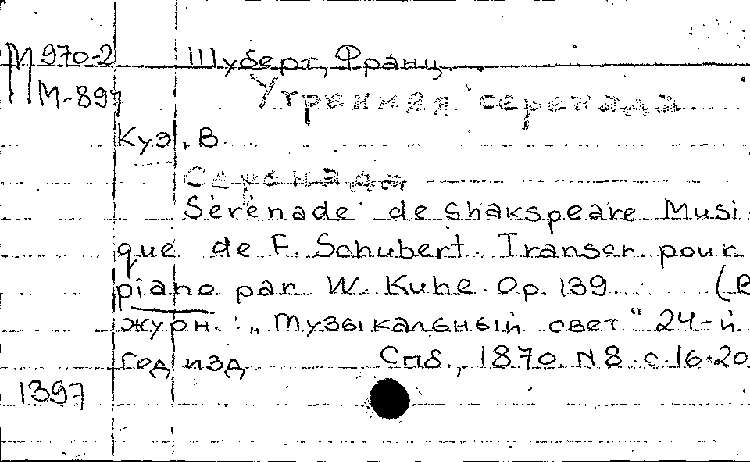 М 970-2 Шуберт, Франц.
М-897 Утренняя серенада
Куэ, В.
Серенада
Sérénade de Shakspeare Musi
que de F. Schubert. Transcr. pour
piano par W. Kuhe. Op. 139 (В
журн.: „Музыкальный свет" 24-й
год изд Спб., 1870 N 8. с. 16-20
1397